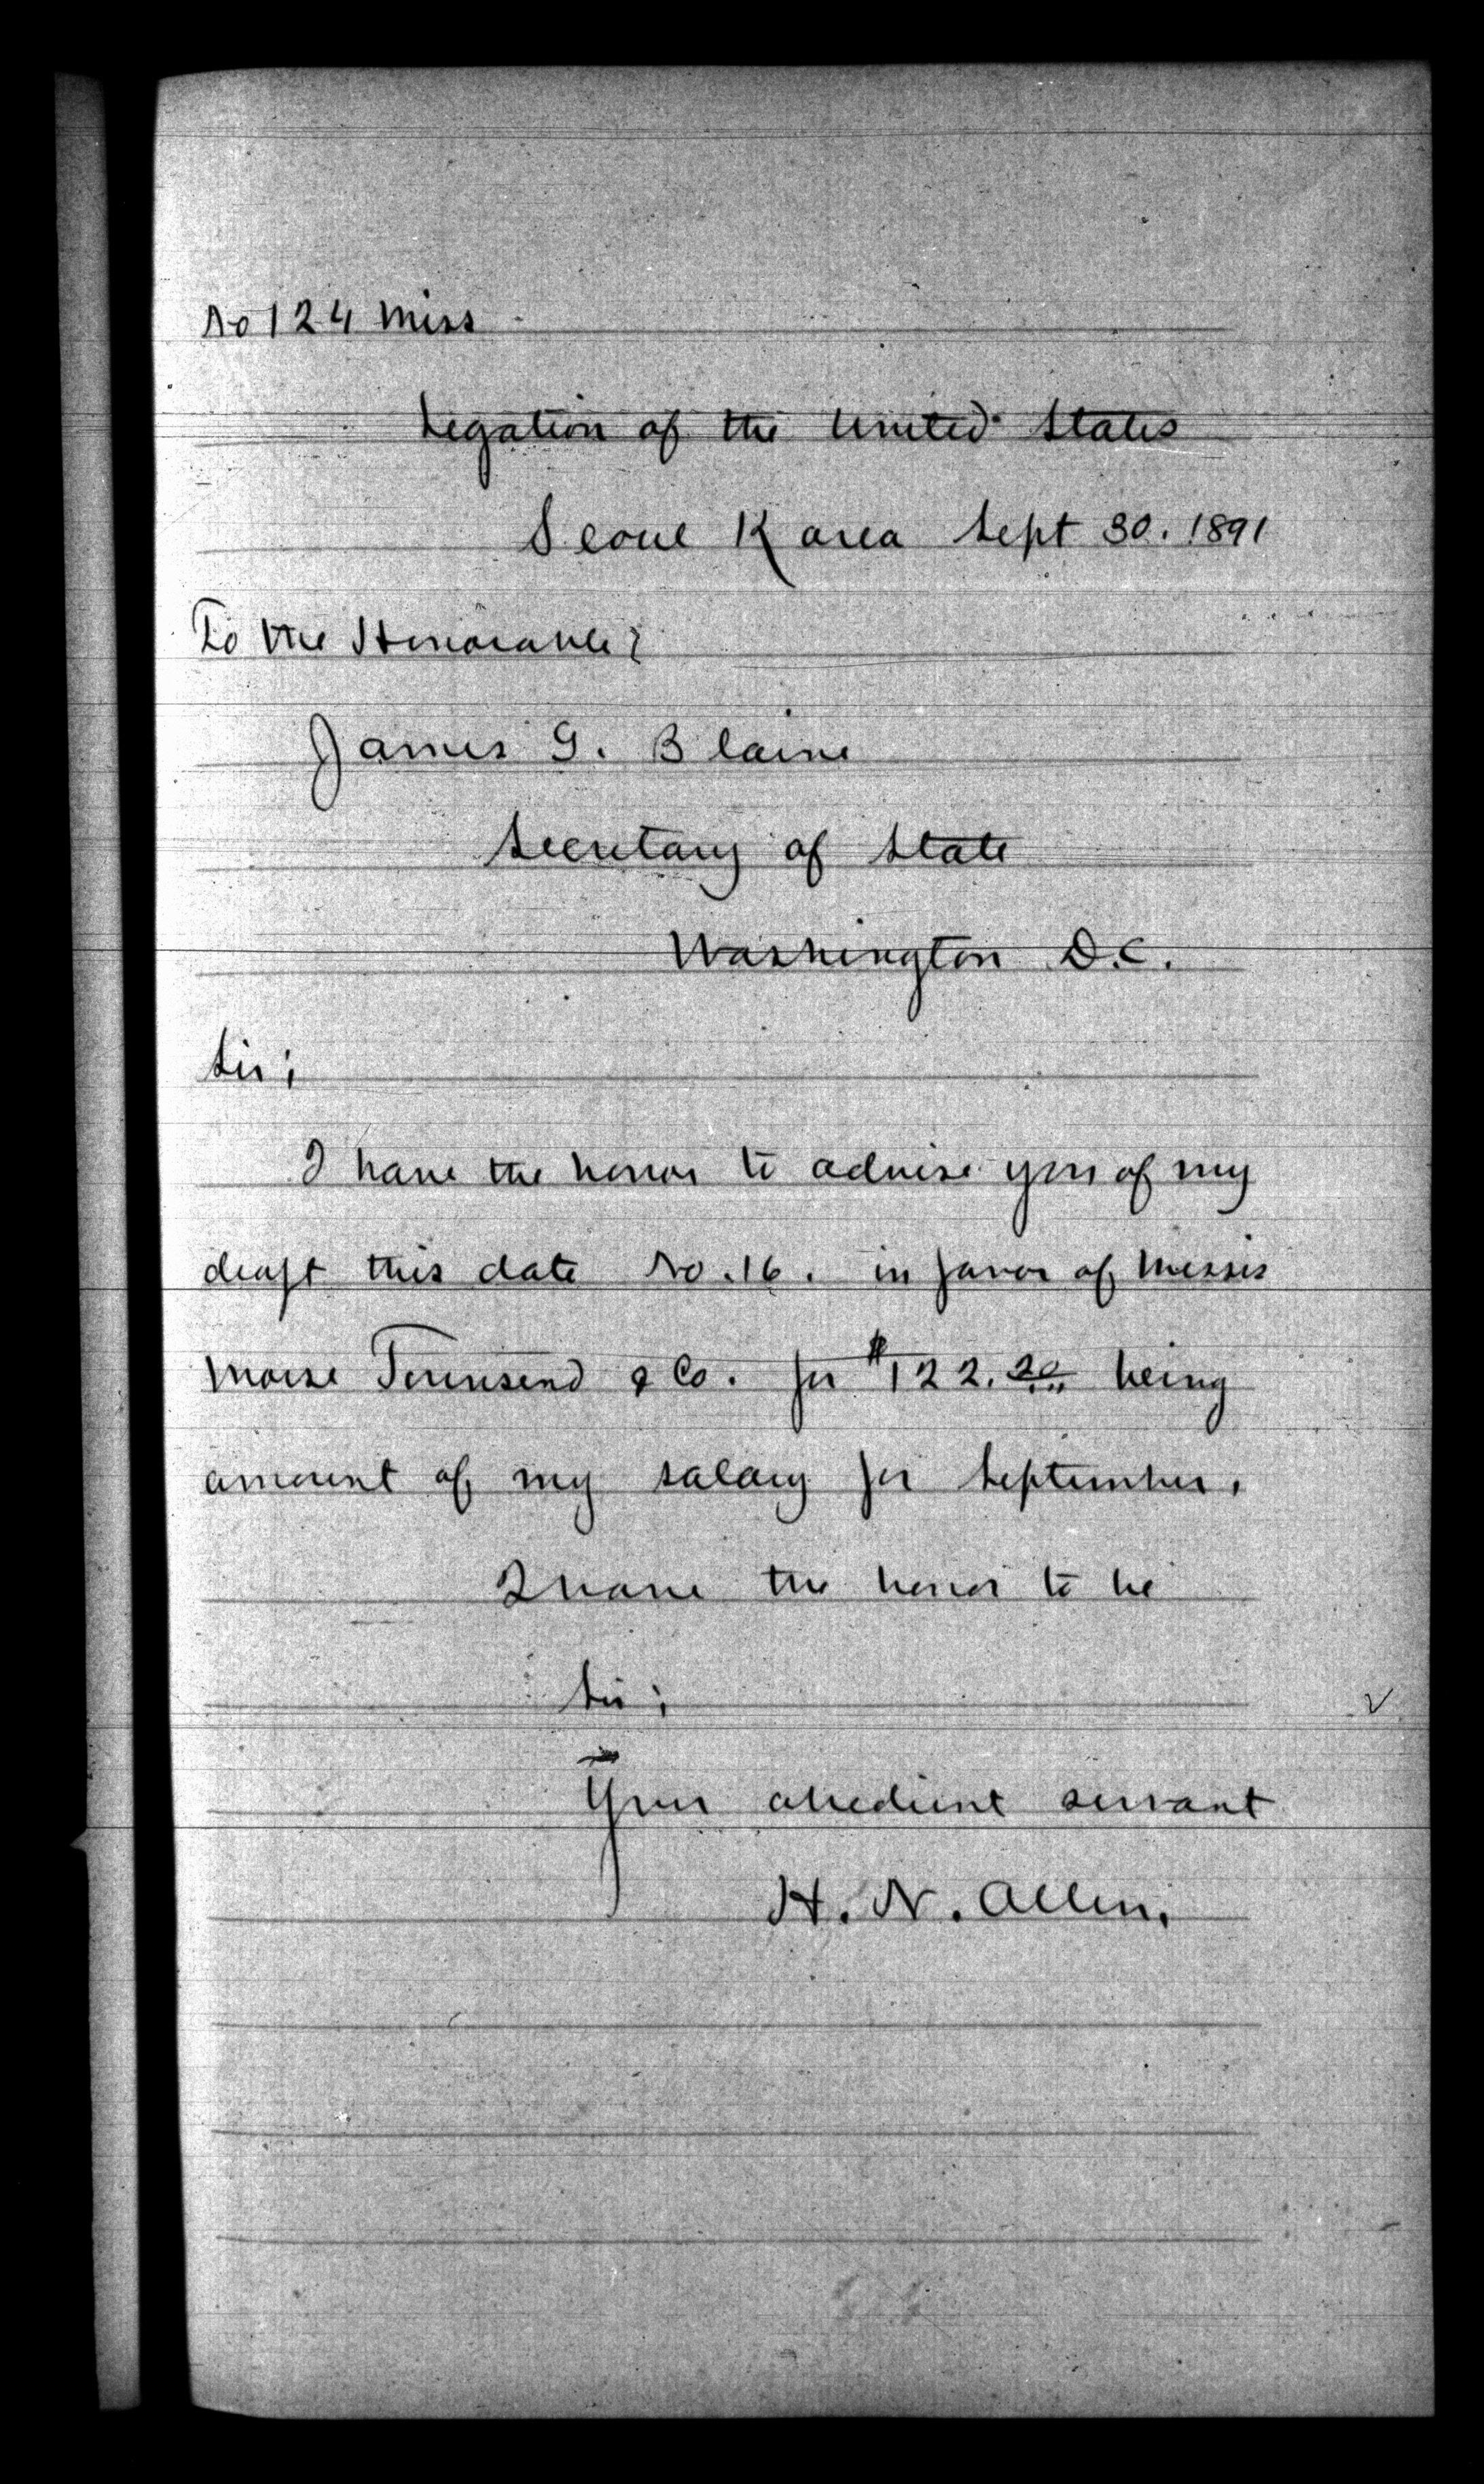 No 124 Miss
Legation of the United States
Seoul Korea Sept 30. 1891
To the Honorable:
James G. Blaine
Secretary of State
Washington D.C.
Sir;
I have the honor to advise you of my
draft this date No. 16. in favor of Messrs
Morse Townsend & Co. for $122.20 being
amount of my salary for September.
I have the honor to be
Sir;
Your obedient servant
H. N. Allen.